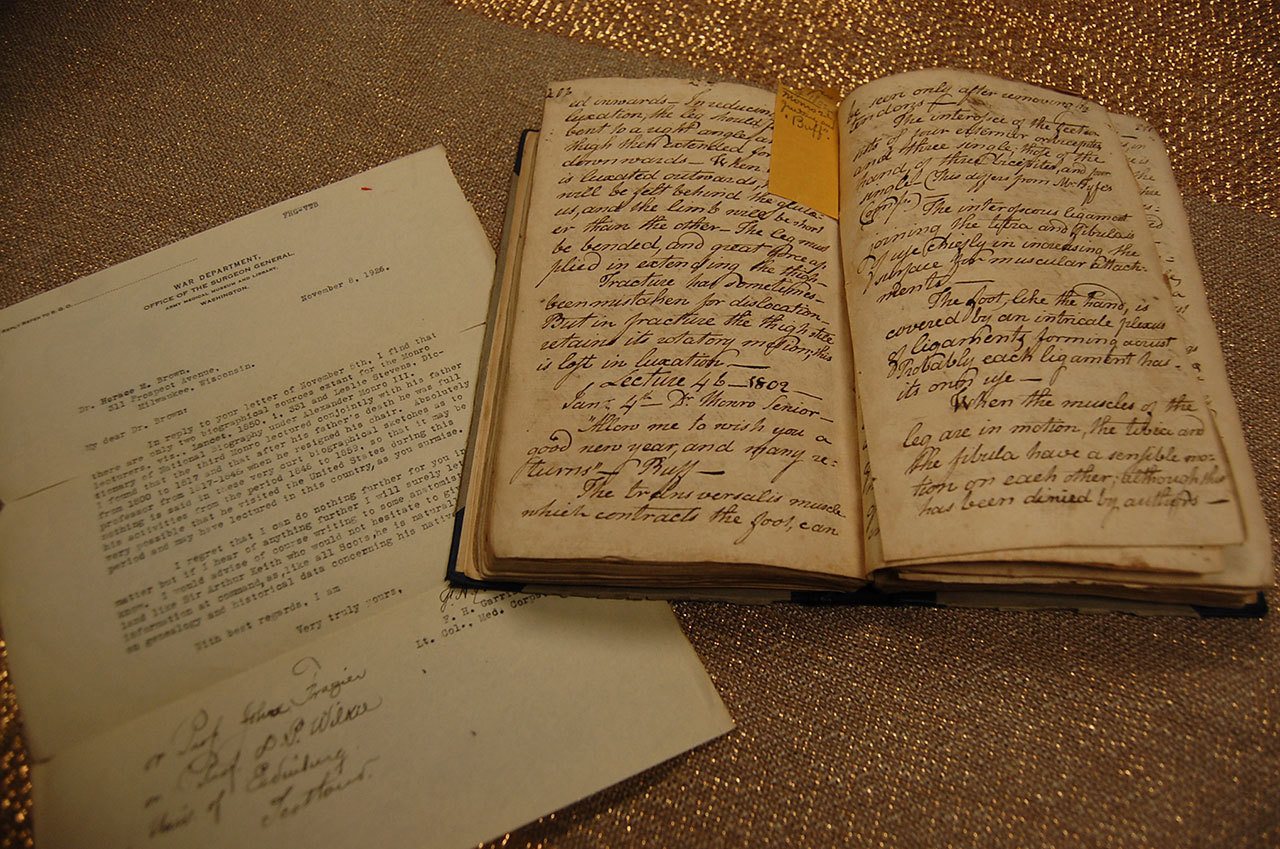 FHG-VTB
WAR DEPARTMENT,
OFFICE OF THE SURGEON GENERAL.
ARMY MEDICAL MUSEUM AND LIBRARY.
WASHINGTON.
November 8, 1926.
Dr. Horace M. Brown,
211 Prospect Avenue,
Milwaukee, Wisconsin.
My dear Dr. Brown:
In reply to your letter of November 5th, I find that
there are only two biographical sources extant for the Monro
Lectures, viz. Lancet: 1850. I. 331 and Leslie Stevens. Dic-
tionary of National Biography under Alexander Monro III.
found that the third Monro lectured conjointly with his father
from 1800 to 1817 and that after his father's death he was full
professor from 1817-1846 when he resigned his chair. Absolutely
nothing is said in these very curt biographical sketches as to
his activities from the period 1846 to 1859, so that it may be
very possible that he visited the United States during this
period and may have lectured in this country, as you surmise.
I regret that I can do nothing further for you in
matter but if I hear of anything further I will surely let
know. I would advise of course writing to some anatomist
land like Sir Arthur Keith who would not hesitate to gi
information at command, as, like all Scots, he is naturall
on genealogy and historical data concerning his nativ
With best regards, I am
Very truly yours,
F. H. Garri
Lt. Col., Med. Corps
or Prof John Frazier
or Prof. D. P. Wilkie
Univ of Edinburg
Scotland.
202
al inwards — In reducing
luxation, the leg should
bent to a right angle, an
thigh then extended for
downwards — When
is luxated outwards,
will be felt behind the glute-
us, and the limb will be short
er than the other — The leg must
be bended, and great force ap
plied in extending the thigh—
Fracture has sometimes
been mistaken for dislocation—
But in fracture the thigh still
retains its rotatory motion; this
is loft in luxation —
Lecture 46 — 1802 —
Jany 4th Dr Monro Senior
"Allow me to wish you a
good new year, and many re-
turns" — ( Buff —
The transversalis muscle
which contracts the foot, can
Buff
be seen only after removing the
tendons —
The interossei of the feet con
sists of four externer or bicipites
and three single: thoſe of the
hand, of three bicipites, and four
single — (This differs from Mr Fyfe's
The interosseous ligament
joining the tibia and fibula is
of use chiefly in increasing the
surface for muscular attach-
ments —
The foot, like the hand, is
covered by an intricate plexus
of ligaments, forming a crust
Probably each ligament has
its own use —
When the muscles of the
leg are in motion, the tibia and
the fibula have a sensible mo-
tion on each other; although this
has been denied by authors —